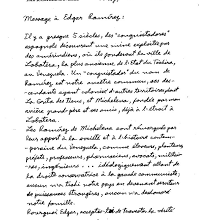 Message à Edgar Ramírez:
Il y a presque 5 siècles, des "conquistadores"
espagnols découvrent une mine exploitée par
des amérindiens, où ils fondèrent la ville de
Lobatera, la plus ancienne de l'Etat du Táchira,
au Venezuela. Un "conquistador" du nom de
Ramírez est notre ancêtre commun, ses des-
cendants ayant colonisé d'autres territoires, dont
La Grita, les Tienes, et Michelena, fondée par mon
arrière grand-père et ses amis, déjà à l'étroit à
Lobatera.
Les Ramírez de Michelena sont remarqués par
leur apport à la société et à l'histoire contem-
poraine du Venezuela, comme éleveurs, planteurs,
préfets, professeurs, politiciens, avocats, militai-
res, ingénieurs ... idéologiquement allant de
la droite conservatrice à la gauche communiste;
aucun n'a trahi notre pays en devenant serviteur
de puissances étrangères, aucun n'a déshonoré
notre famille.
Pourquoi Edgar, acceptes-tu de travestir la vérité